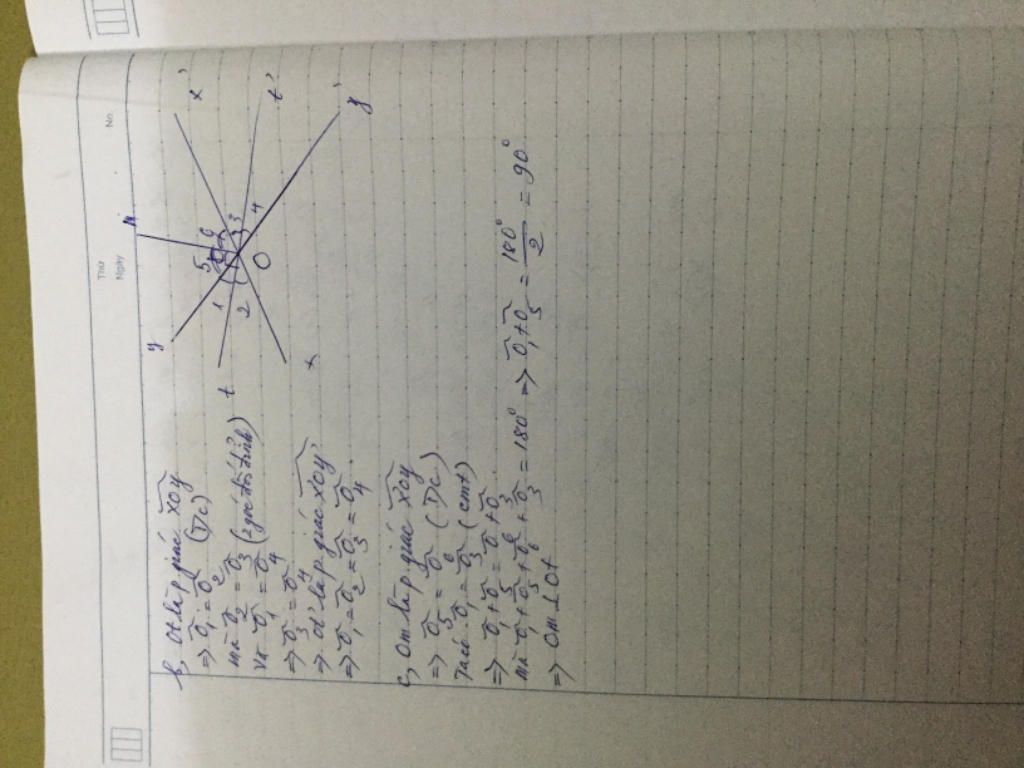 Thứ
Ngày
No.
b, Ot là p.giác xOy
=> O1 = O2 (Đ/c)
mà O2 = O3 (2 góc đối đỉnh)
và O1 = O4
=> O3 = O4
=> Ot' là p.giác x'Oy'
=> O1 = O2 = O3 = O4
y
t
x
1
2
5
6
3
4
O
m
x'
t'
y'
c, Om là p.giác x'Oy
=> O5 = O6 (Đ/c)
Ta có O1 = O3 (cmt)
=> O1 + O5 = O6 + O3
mà O1 + O5 + O6 + O3 = 180° => O1 + O5 = 180°/2 = 90°
=> Om ⊥ Ot